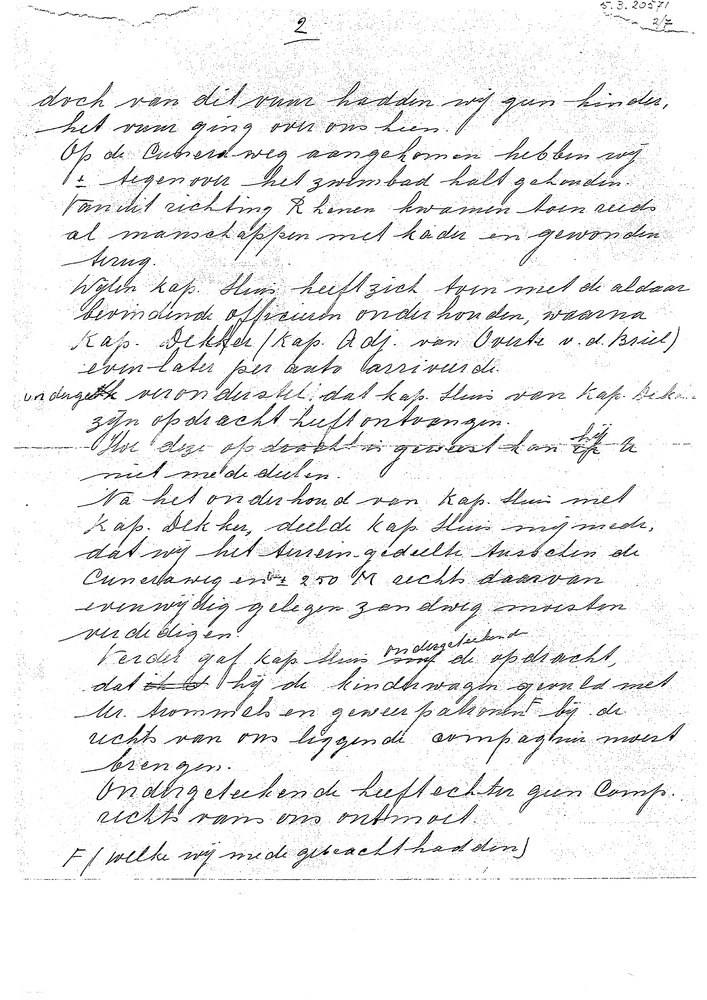 5.3.20571
2/7
2
doch van dit vuur hadden wij geen hinder,
het vuur ging over ons heen.
Op de Cuneraweg aangekomen hebben wij
± tegenover het zwembad halt gehouden.
Vanuit richting Rhenen kwamen toen reeds
al manschappen met kader en gewonden
terug.
Wijlen kap. Sluis heeft zich toen met de aldaar
bevindende officieren onderhouden, waarna
Kap. Dekker (Kap. Adj. van Overste v.d. Briel)
even later per auto arriveerde.
onderget. veronderstel: dat kap. Sluis van Kap. Dekk
zijn opdracht heeft ontvangen.
Hoe deze opdracht is geweest kan hij U
niet mededeelen.
Na het onderhoud van Kap. Sluis met
Kap. Dekker, deelde kap. Sluis mij mede,
dat wij het terrein-gedeelte tusschen de
Cuneraweg en ± 250 M rechts daarvan
evenwijdig gelegen zandweg moesten
verdedigen.
Verder gaf kap. Sluis ondergeteekende de opdracht,
dat hij de kinderwagen gevuld met
tr. trommels en geweerpatronen F bij de
rechts van ons liggende compagnie moest
brengen.
Ondergeteekende heeft echter geen Comp.
rechts van ons ontmoet.
F (welke wij mede gebracht hadden)